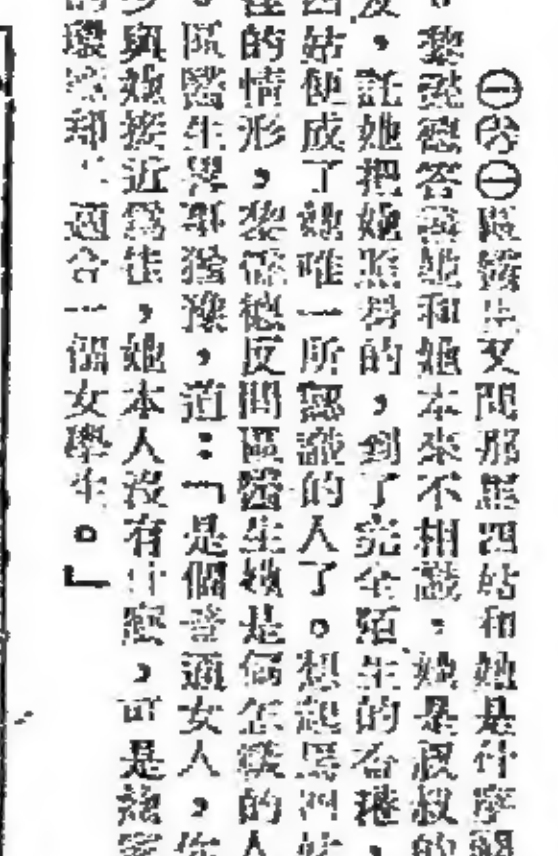 ㊀㊇㊀區醫生又問那馬四姑和她是什麼關
。黎懿德答覆她和她本來不相識,她是叔叔的
友,託她把她照勞的,到了完全陌生的香港,
四姑便成了她唯一所認識的人了。想起馬四姑
的情形,黎懿德反問區醫生她是個怎樣的人
。區醫生畧耶猶豫,道:「是個普通女人,你
與她接近為佳,她本人沒有什麼,可是她家
的環境却不適合一個女學生。」